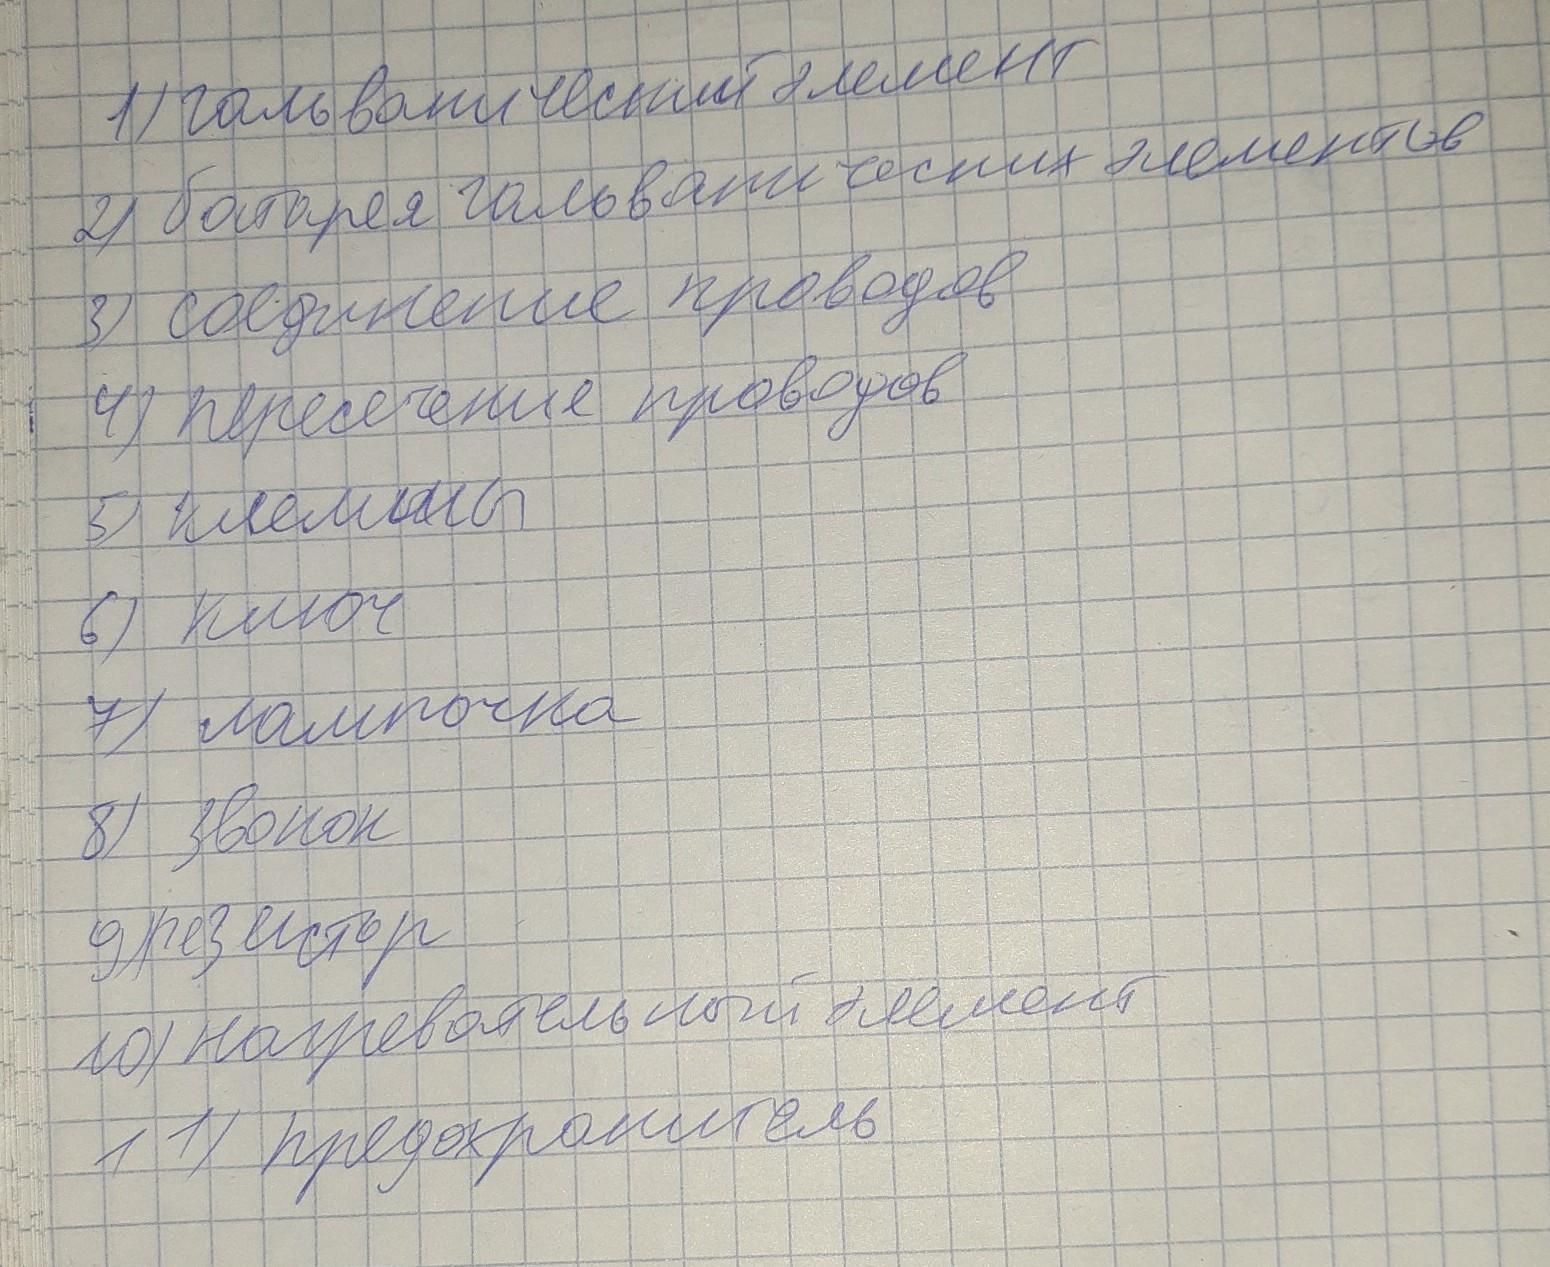 1) гальванический элемент
2) батарея гальванических элементов
3) соединение проводов
4) пересечение проводов
5) клеммы
6) ключ
7) лампочка
8) звонок
9) резистор
10) нагревательный элемент
11) предохранитель